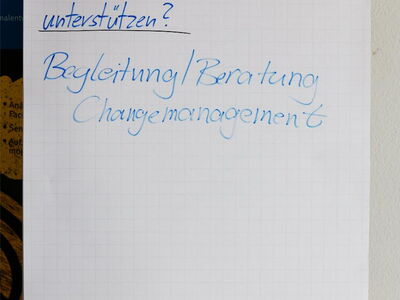 unterstützen?
Begleitung/Beratung
Changemanagement